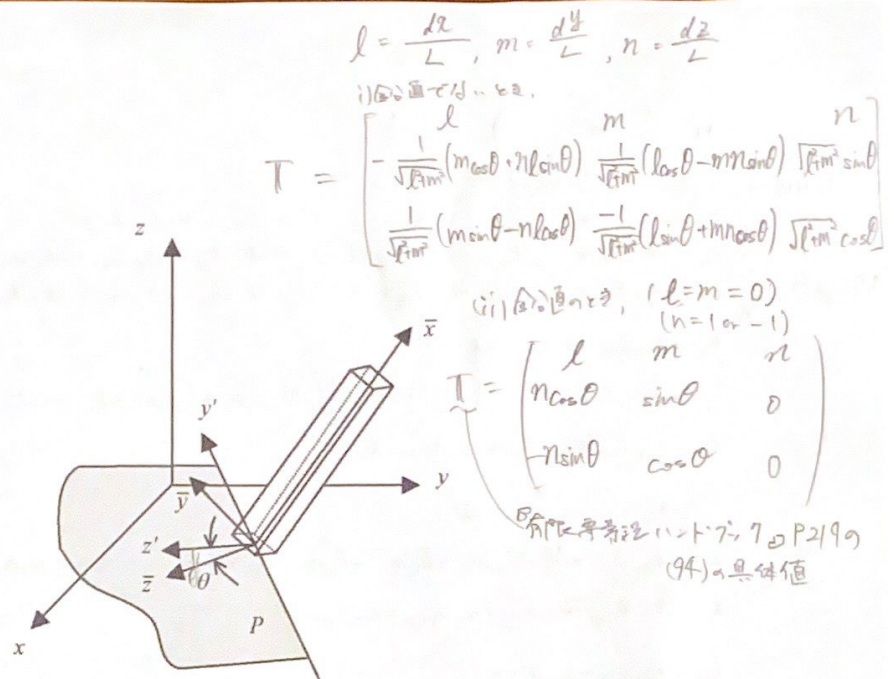 l = dx/L , m = dy/L , n = dz/L
(i) 鉛直でないとき,
T = [ l m n
- 1/√(l²+m²) (m cosθ + nl sinθ) 1/√(l²+m²) (l cosθ - mn sinθ) √(l²+m²) sinθ
1/√(l²+m²) (m sinθ - nl cosθ) -1/√(l²+m²) (l sinθ + mn cosθ) √(l²+m²) cosθ ]
(ii) 鉛直のとき, (l = m = 0)
(n = 1 or -1)
T = ( l m n
n cosθ sinθ 0
-n sinθ cosθ 0 )
有限要素法ハンドブックのP219の
(94)の具体値
z
x̄
y'
y
ȳ
z'
z̄
θ
P
x